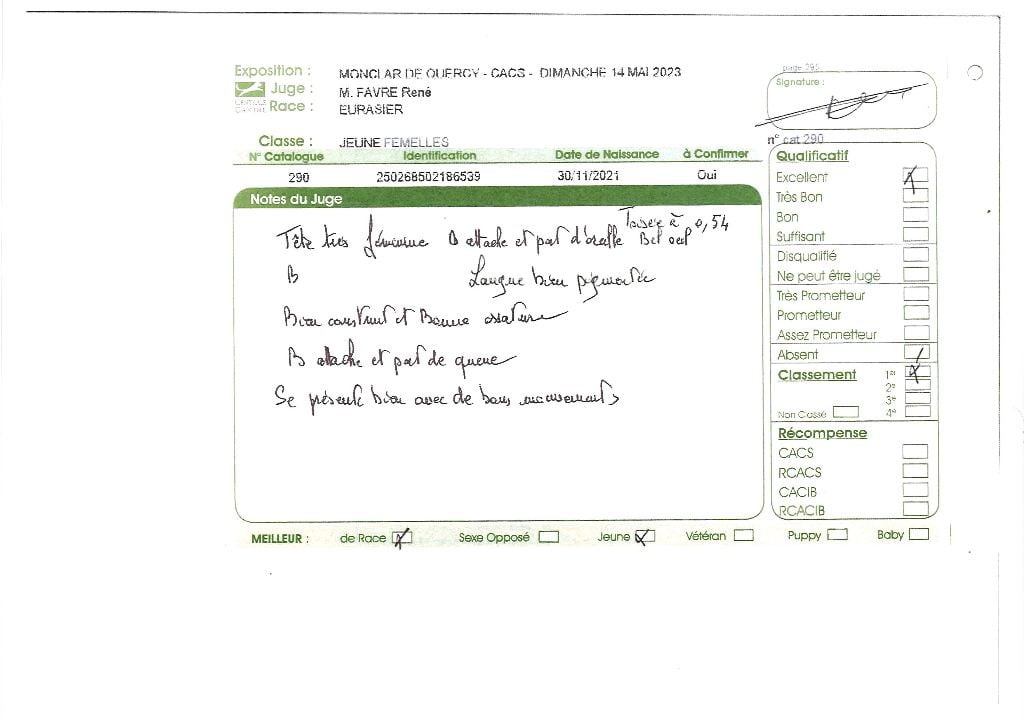 page 295
Exposition : MONCLAR DE QUERCY - CACS - DIMANCHE 14 MAI 2023
Signature :
Juge : M. FAVRE René
CENTRALE CANINE
Race : EURASIER
Classe : JEUNE FEMELLES
n° cat 290
N° Catalogue Identification Date de Naissance à Confirmer
290 250268502186539 30/11/2021 Oui
Notes du Juge
Toisée à 0,54
Tête très féminine B attache et port d'oreille Bel oeil
B Langue bien pigmentée
Bien construit et Bonne ossature
B attache et port de queue
Se présente bien avec de bons mouvements
Qualificatif
Excellent
Très Bon
Bon
Suffisant
Disqualifié
Ne peut être jugé
Très Prometteur
Prometteur
Assez Prometteur
Absent
Classement 1er
2e
3e
Non Classé 4e
Récompense
CACS
RCACS
CACIB
RCACIB
MEILLEUR : de Race Sexe Opposé Jeune Vétéran Puppy Baby